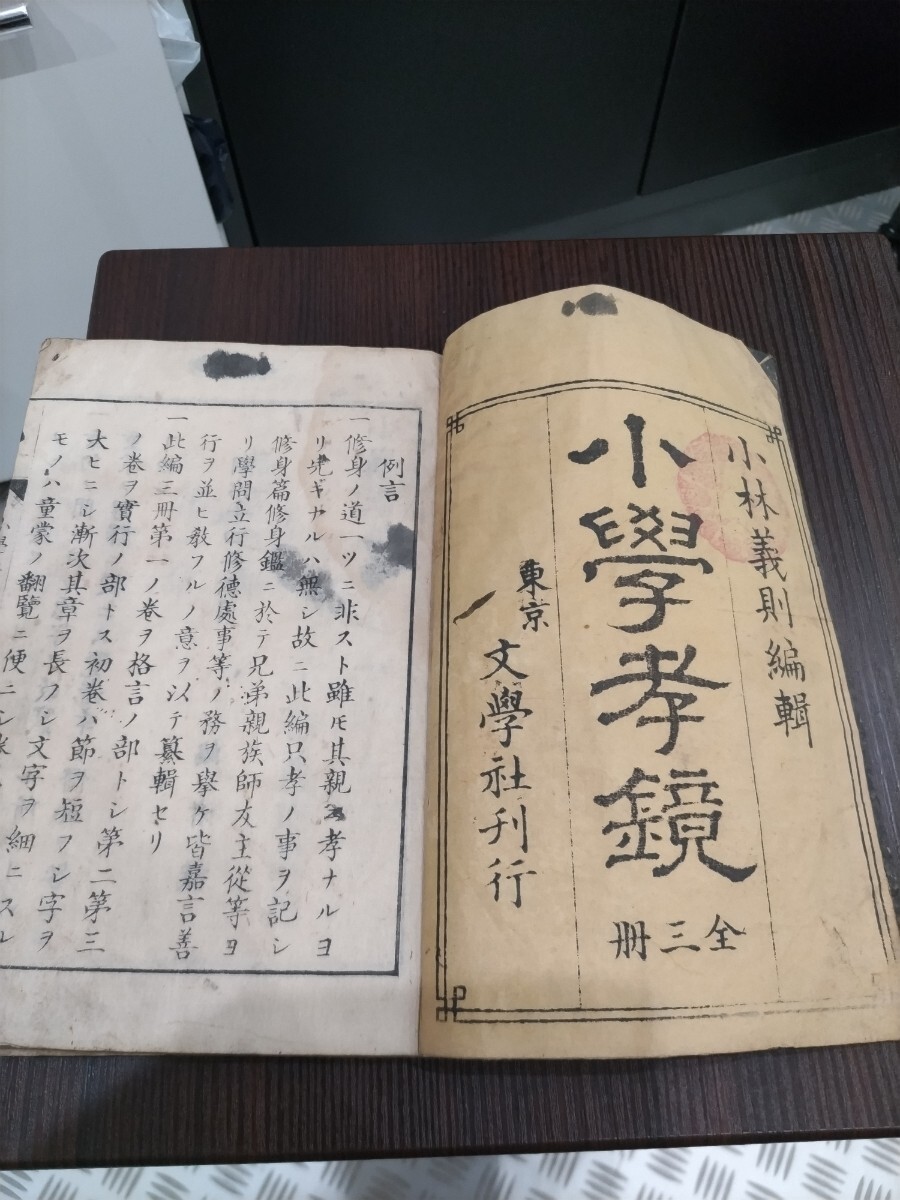 小林義則編輯
小學孝鏡
全三冊
東京
文學社刊行
例言
一修身ノ道一ツニ非スト雖モ其親ニ孝ナルヨ
リ先キナルハ無シ故ニ此編只孝ノ事ヲ記シ
修身篇修身鑑ニ於テ兄弟親族師友主從等ヨ
リ學問立行修德處事等ノ務ヲ擧ケ皆嘉言善
行ヲ並ヒ敎フルノ意ヲ以テ纂輯セリ
一此編三冊第一ノ卷ヲ格言ノ部トシ第二第三
ノ卷ヲ實行ノ部トス初卷ハ節ヲ短フシ字ヲ
大ヒニシ漸次其章ヲ長フシ文字ヲ細ニスル
モノハ童蒙ノ翻覽ニ便ニシ